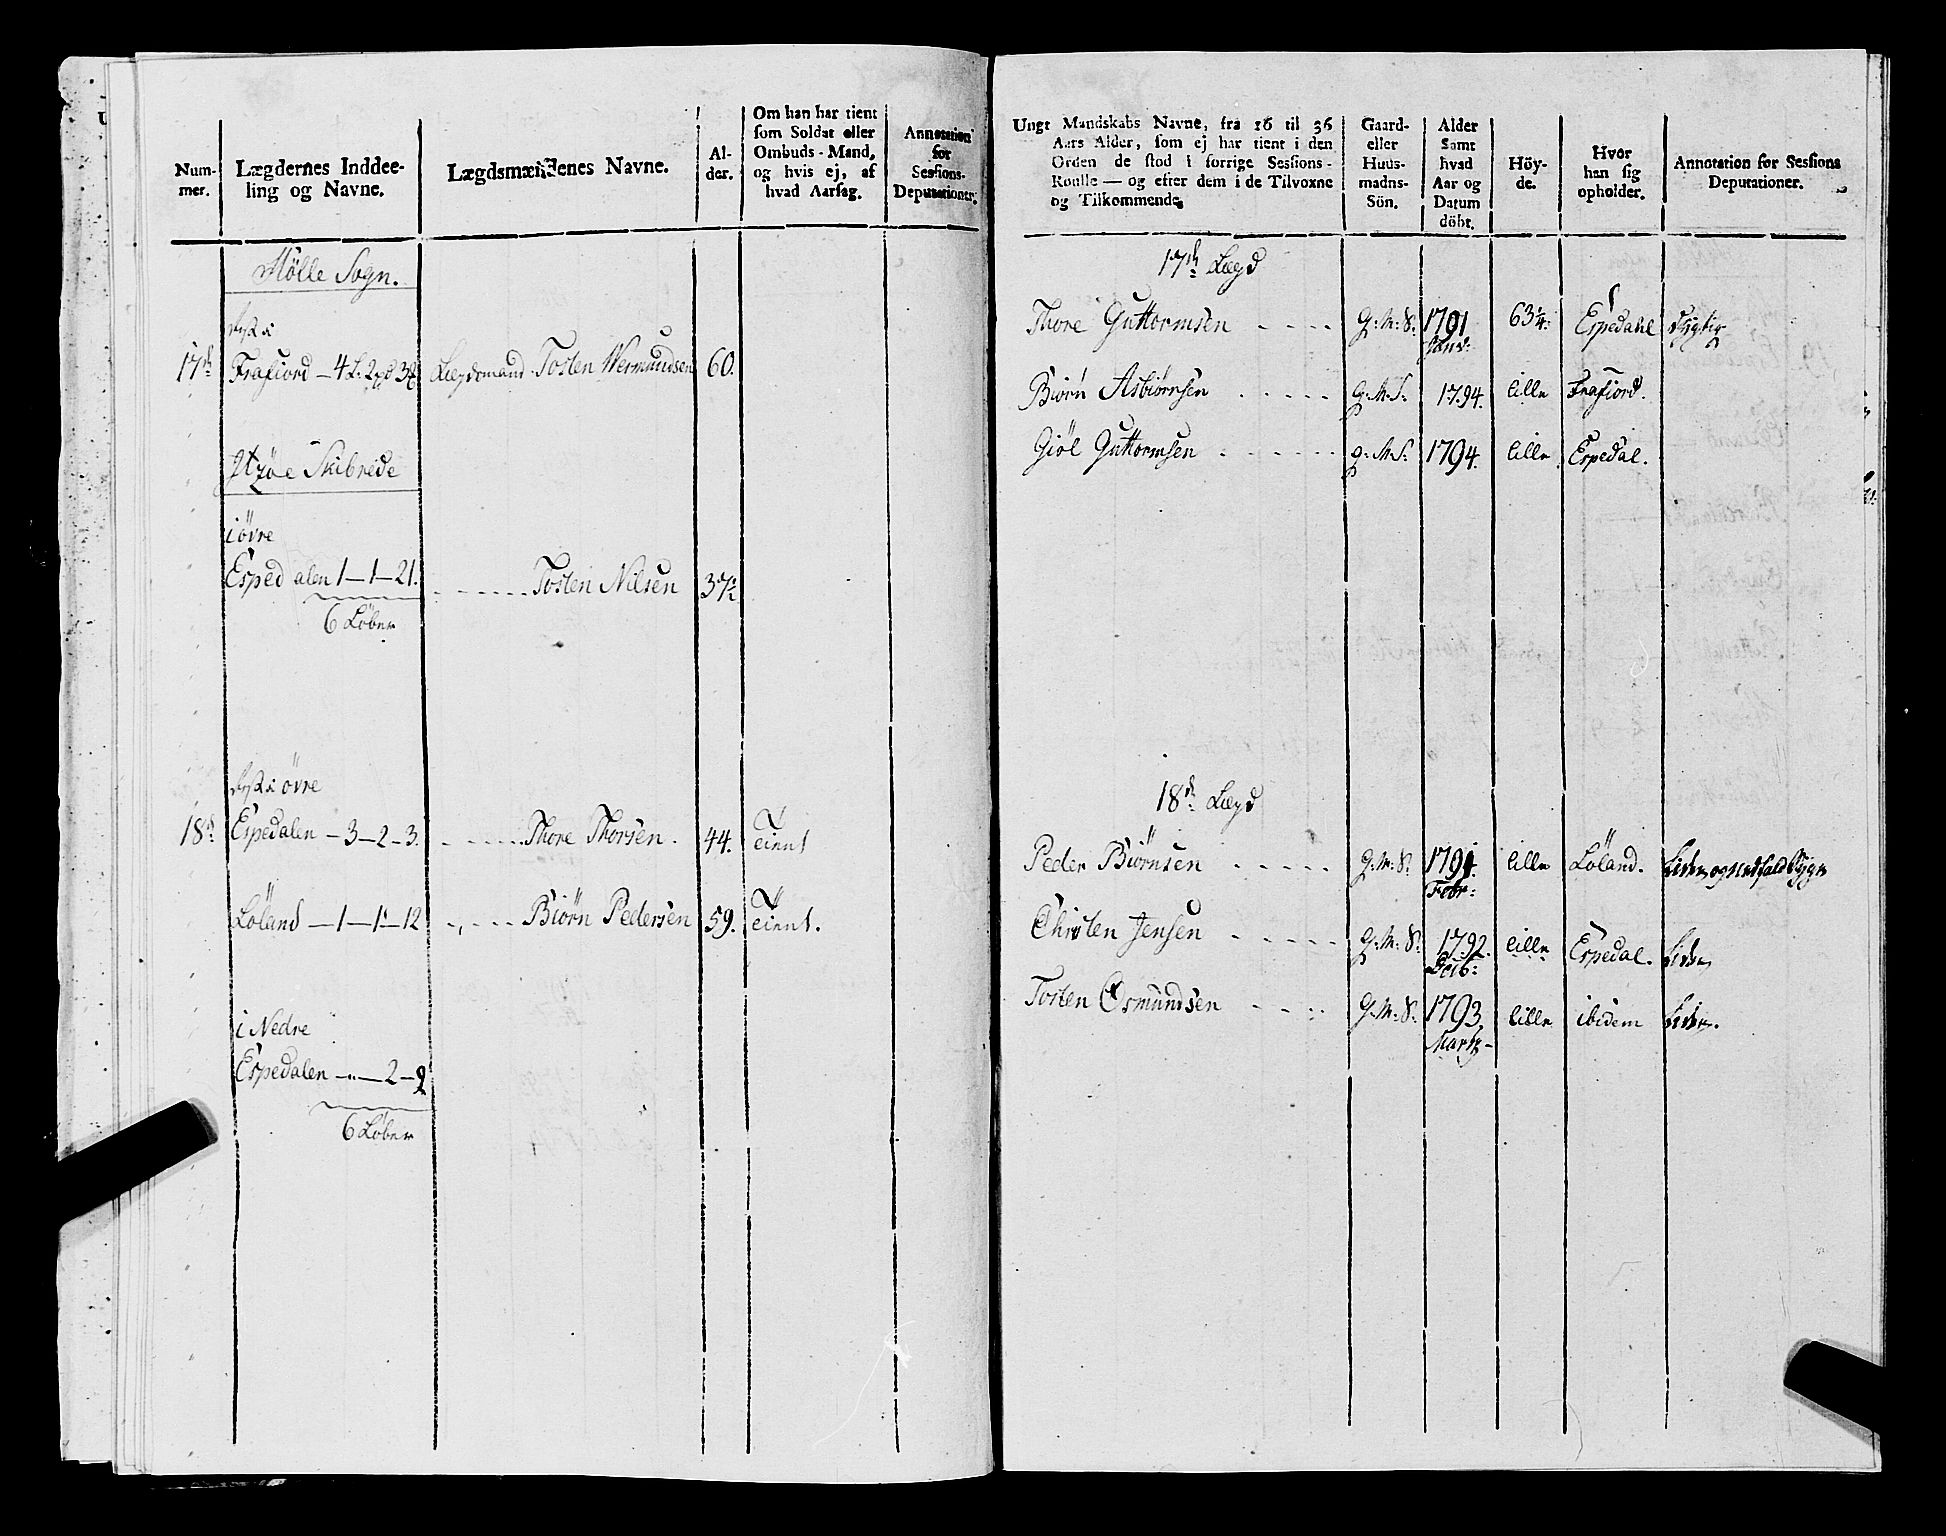 Num-
mer.
Lægdernes Inddee-
ling og Navne.
Lægdsmændenes Navne.
Al-
der.
Om han har tient
som Soldat eller
Ombuds-Mand,
og hvis ej, af
hvad Aarsag.
Annotation
for
Sessions-
Deputationer.
Mølle Sogn.
17de Frafiord — 4 L: 2 pd 3 Lægdsmand Tosten Wermundsen 60.
Skibrede
i övre
Espedalen 1—1—21. Tosten Nilsen 37½
6 Løber
övre
18de Espedalen — 3—2—3. Thore Thorsen. 44. Tient
Löland — 1—1—12 Biörn Pedersen 59. Tient.
i Nedre
Espedalen — „ — 2—9
6 Løber
Ungt Mandskabs Navne, fra 16 til 36
Aars Alder, som ej har tient i den
Orden de stod i forrige Sessions-
Roulle — og efter dem i de Tilvoxne
og Tilkommende.
Gaard-
eller
Huus-
mands-
Sön.
Alder
Samt
hvad
Aar og
Datum
döbt.
Höy-
de.
Hvor
han sig
opholder.
Annotation for Sessions
Deputationer.
17de Lægd
Thore Guttormsen G:M:S: 1791 63¼: Espedahl Dygtig
Biörn Asbiörnsen G:M:S: 1794. lille Frafiord.
Giöl Guttormsen G:M:S: 1794. lille Espedal.
18de Lægd
Peder Biörnsen G:M:S: 1791. lille Löland.
Febr:
Christen Jensen G:M:S: 1792. lille Espedal. Liden
Tosten Osmundsen G:M:S: 1793. lille ibidem Liden.
Martz